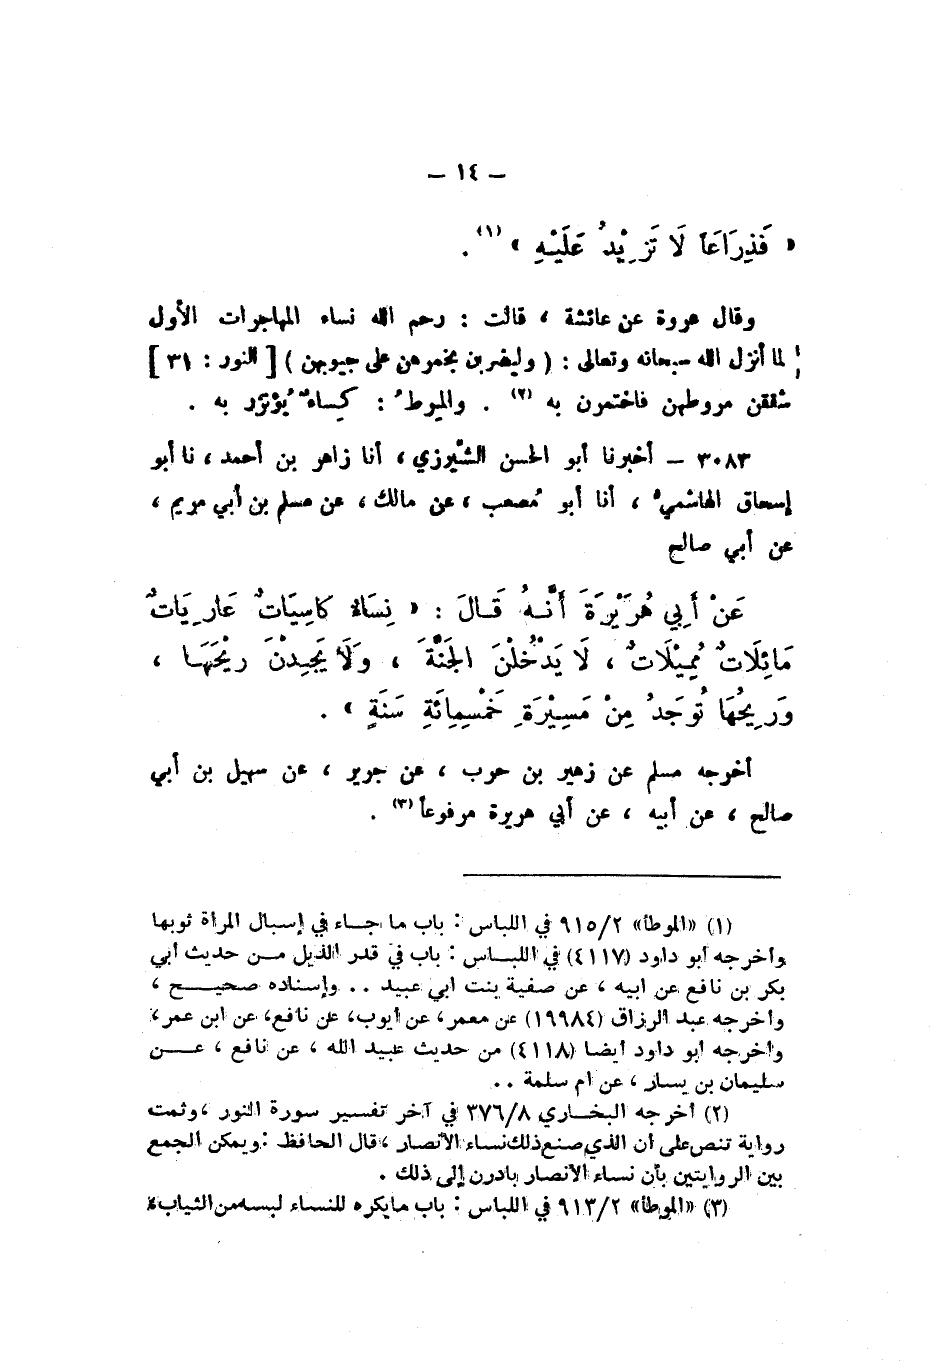 – ١٤ –
« فَذِرَاعَاً لَا تَزِيْدُ عَلَيْهِ » (١) .
وقال عروة عن عائشة ، قالت : رحم الله نساء المهاجرات الأول
لما أنزل الله سبحانه وتعالى : ( وليضربن بخمرهن على جيوبهن ) [ النور : ٣١ ]
شققن مروطهن فاختمرن به (٢) . والمِرطُ : كِساءٌ يُؤتزَر به .
٣٠٨٣ – أخبرنا أبو الحسن الشَّيرزي ، أنا زاهر بن أحمد ، نا أبو
إسحاق الهاشميُّ ، أنا أبو مُصعب ، عن مالك ، عن مسلم بن أبي مريم ،
عن أبي صالح
عَنْ أَبِي هُرَيْرَةَ أَنَّهُ قَالَ : « نِسَاءٌ كَاسِيَاتٌ عَارِيَاتٌ
مَائِلَاتٌ مُمِيْلَاتٌ ، لَا يَدْخُلْنَ الجَنَّةَ ، وَلَا يَجِدْنَ رِيْحَهَا ،
وَرِيحُهَا تُوجَدُ مِنْ مَسِيْرَةِ خَمْسِمِائَةِ سَنَةٍ » .
أخرجه مسلم عن زهير بن حرب ، عن جرير ، عن سهيل بن أبي
صالح ، عن أبيه ، عن أبي هريرة مرفوعاً (٣) .
(١) «الموطأ» ٩١٥/٢ في اللباس : باب ما جاء في إسبال المرأة ثوبها
وأخرجه أبو داود (٤١١٧) في اللباس : باب في قدر الذيل من حديث أبي
بكر بن نافع عن أبيه ، عن صفية بنت أبي عبيد .. وإسناده صحيح ،
وأخرجه عبد الرزاق (١٩٩٨٤) عن معمر، عن أيوب، عن نافع، عن ابن عمر،
وأخرجه أبو داود أيضا (٤١١٨) من حديث عبيد الله ، عن نافع ، عن
سليمان بن يسار ، عن أم سلمة ..
(٢) أخرجه البخاري ٣٧٦/٨ في آخر تفسير سورة النور ، وثمت
رواية تنص على أن الذي صنع ذلك نساء الأنصار ، قال الحافظ : ويمكن الجمع
بين الروايتين بأن نساء الأنصار بادرن إلى ذلك .
(٣) «الموطأ» ٩١٣/٢ في اللباس : باب ما يكره للنساء لبسه من الثياب ،